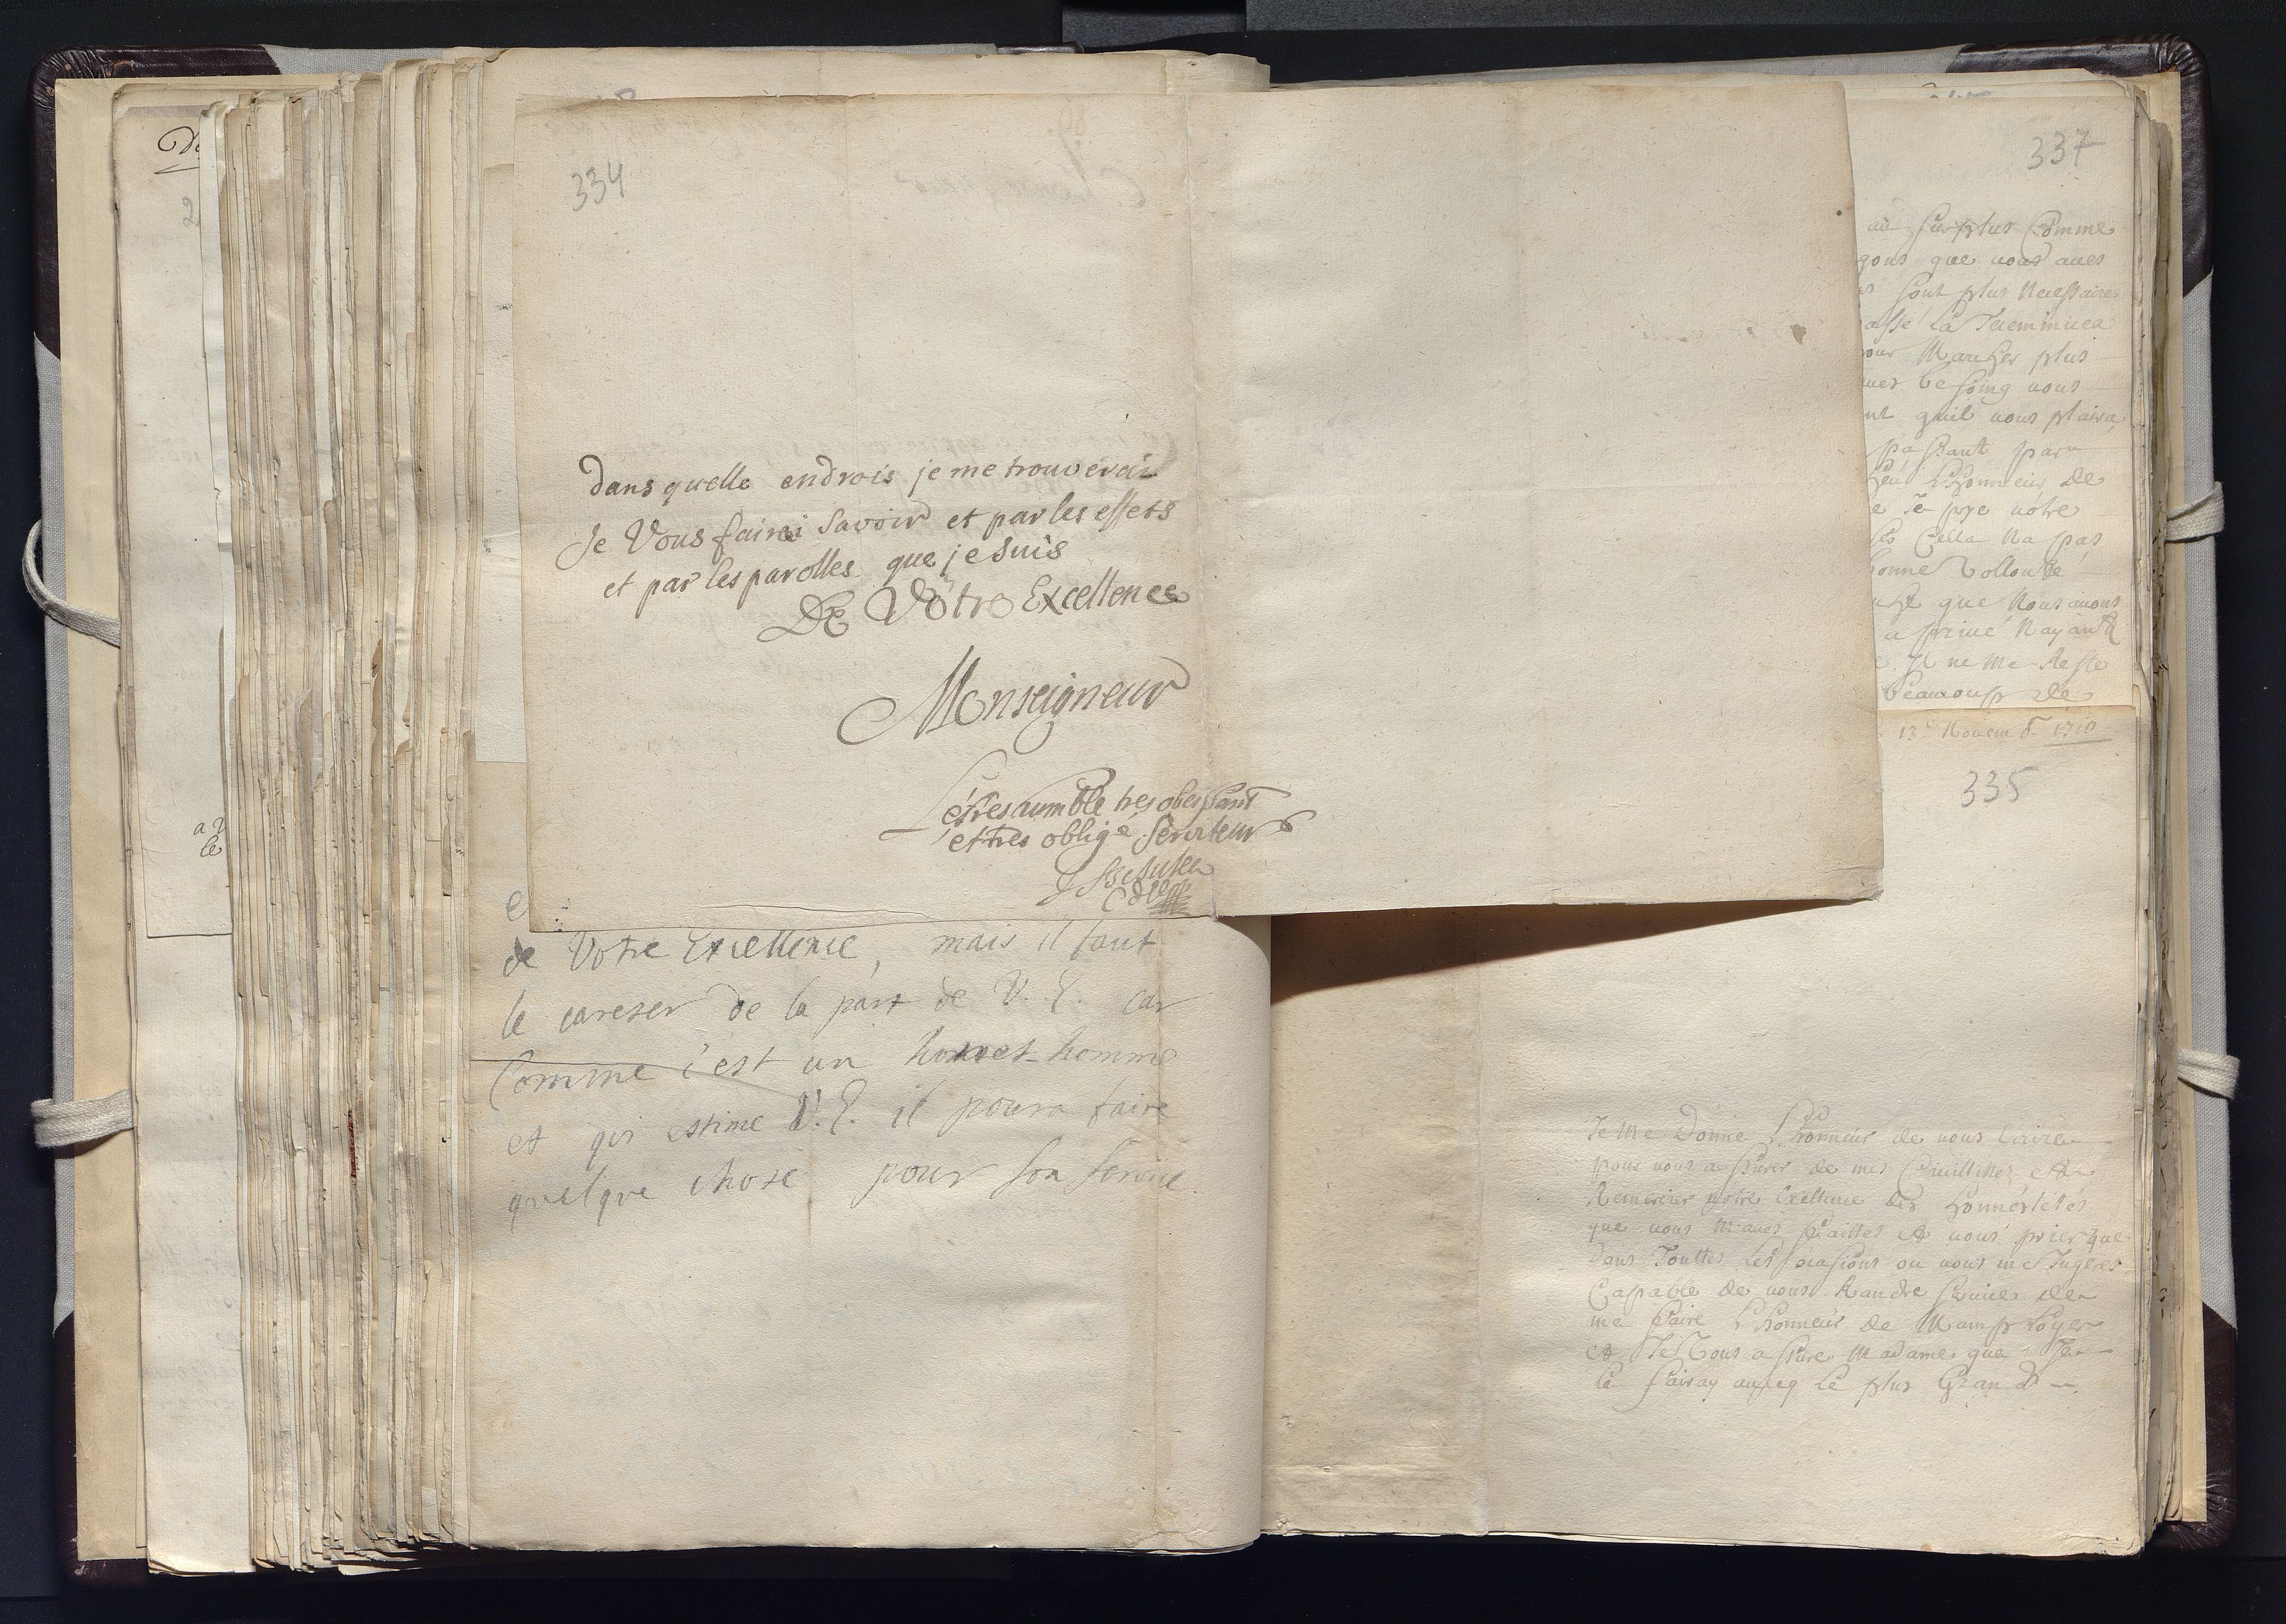 334
dans quelle endrois je me trouverai
Je Vous fairai savoir et par les effets
et par les parolles que je suis
De Vôtre Excellence
Monseigneur
Le tres aumble tres obeissant
et tres obligé serviteur
de Votre Excellence, mais il faut
le careser de la part de V. E. car
Comme c'est un honnet homme
et qui estime V. E. il poura faire
quelque chose pour son service.
337
au surplus Comme
gons que vous aves
sont plus Necessaire
assé La
our Marcher plus
aves besoing vous
nt quil vous plaira
passant par
heu L'honneur de
e Je soye vôtre
Cella Na pas
bonne Vollonté
que Nous avons
a Nayant
Il ne me Reste
beaucoup de
13e Novem b. 1710
335
Je me Donne L'honneur de vous Ecrire
pour vous assurer de mes Civillittez et
Remercier votre Exellence des honnestetés
que vous m'aves faittes et vous prier que
Dans Touttes Les ocasions ou vous me Jugeres
Capable de vous Randre service de
me faire L'honneur de Mamployer
et Je Vous assure Madame que Je
le fairay avecq le plus Grand